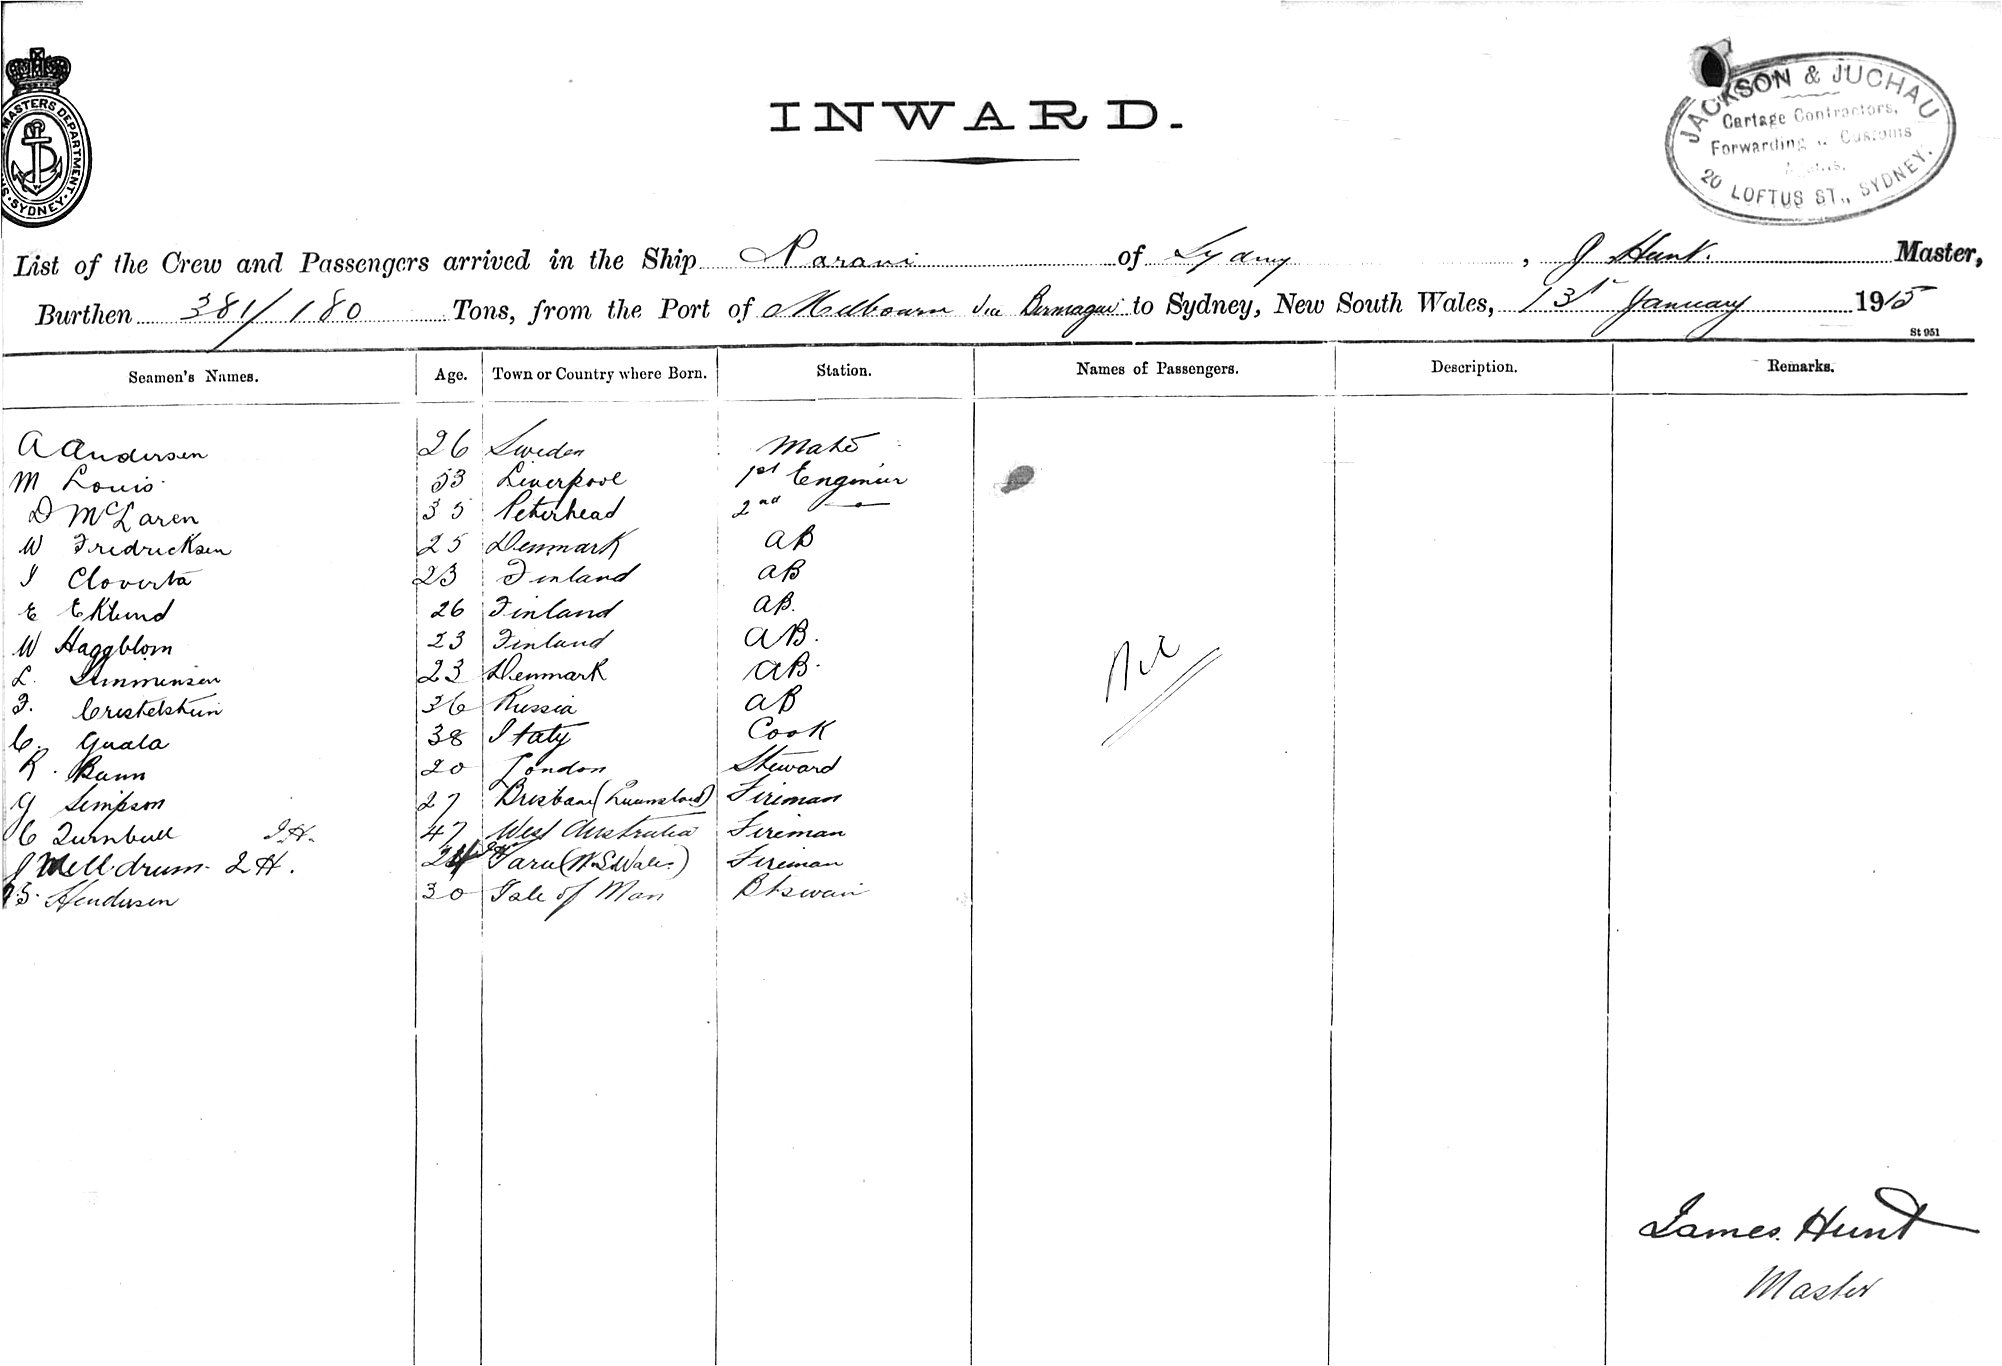 MASTERS DEPARTMENT.
SYDNEY.
INWARD.
JACKSON & JUCHAU
Cartage Contractors,
Forwarding & Customs
Agents,
20 LOFTUS ST., SYDNEY.
List of the Crew and Passengers arrived in the Ship Narani of Sydney, J Hunt. Master,
Burthen 381/180 Tons, from the Port of Melbourne via Bermagui to Sydney, New South Wales, 13th January 1915
St 951
Seamen's Names. Age. Town or Country where Born. Station. Names of Passengers. Description. Remarks.
A Andersen 26 Sweden Mate
M Louis 53 Liverpool 1st Engineer
D McLaren 35 Peterhead 2nd —
W Fredricksen 25 Denmark AB
I Cloverta 23 Finland AB
E Eklund 26 Finland AB.
W Haggblom 23 Finland AB.
L. 23 Denmark AB.
F. Cristelstein 36 Russia AB
C. Guala 38 Italy Cook
R. Bunn 20 London Steward
G Simpson 27 Brisbane (Queensland) Fireman
C Turnbull J.H. 47 West Australia Fireman
J Melldrum J H. 24 Taree (N.S.Wales.) Fireman
S. Henderson 30 Isle of Man Btswain
Nil
James. Hunt
Master